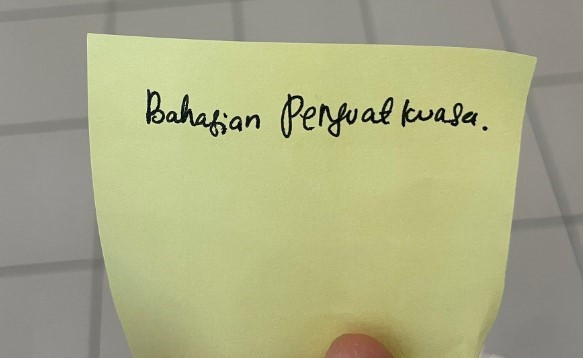 Bahagian Penguatkuasa.